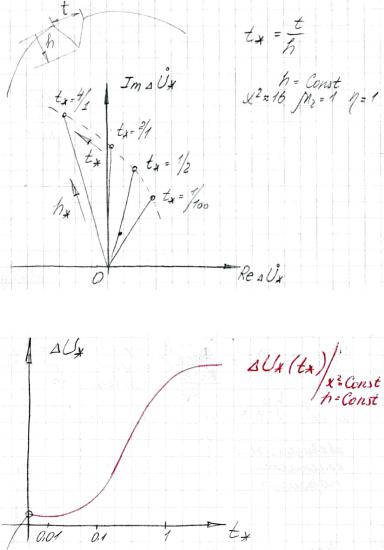 t
h
t* = t/h
h = Const
x² = 16 μ₂ = 1 η = 1
Im Δ U̇*
t* = 4/1
t* = 2/1
t*
t* = 1/2
t* = 1/100
h*
O
Re Δ U̇*
Δ U*
Δ U* (t*) / x² = Const
h = Const
0.01
0.1
1
t*